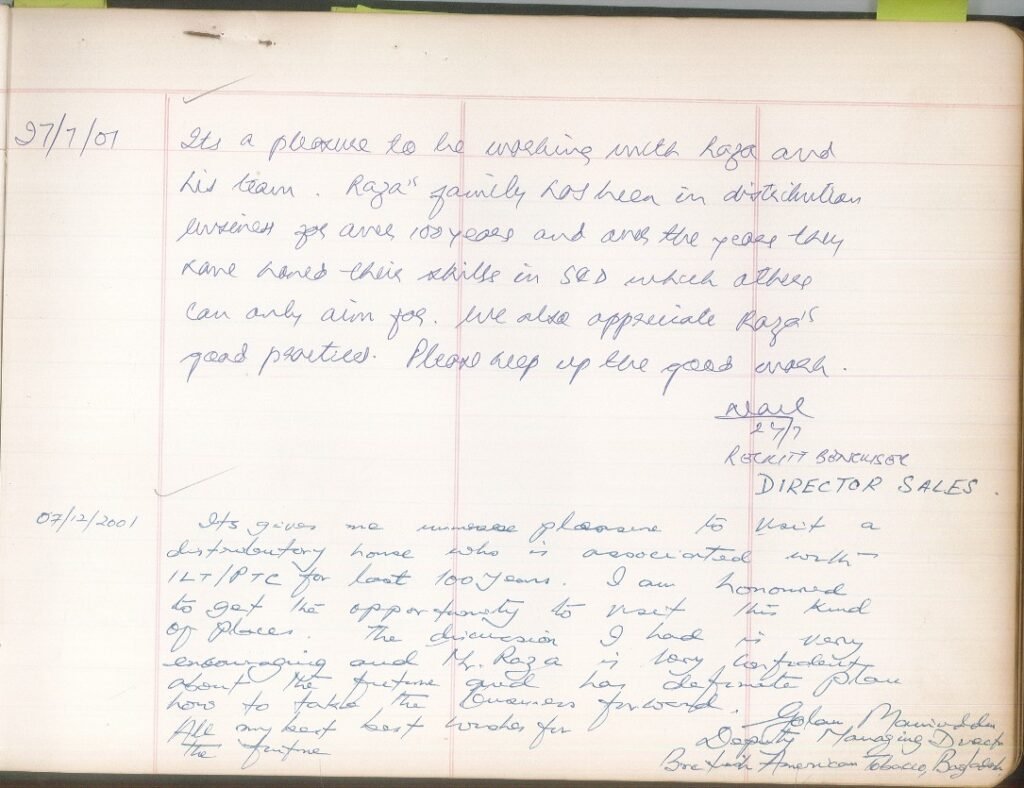 27/7/01
Its a pleasure to be working with Raza and
his team. Raza's family has been in distribution
business for over 100 years and over the years they
have honed their skills in S&D which others
can only aim for. We also appreciate Raza's
good practices. Please keep up the good work.
27/7
RECKITT BENCKISER
DIRECTOR SALES.
07/12/2001
Its gives me immense pleasure to visit a
distributory house who is associated with
ILT/PTC for last 100 years. I am honoured
to get the opportunity to visit this kind
of places. The discussion I had is very
encouraging and Mr. Raza is very confident
about the future and has definate plan
how to take the business forward.
All my best best wishes for
the future
Deputy Managing Director
British American Tobacco,